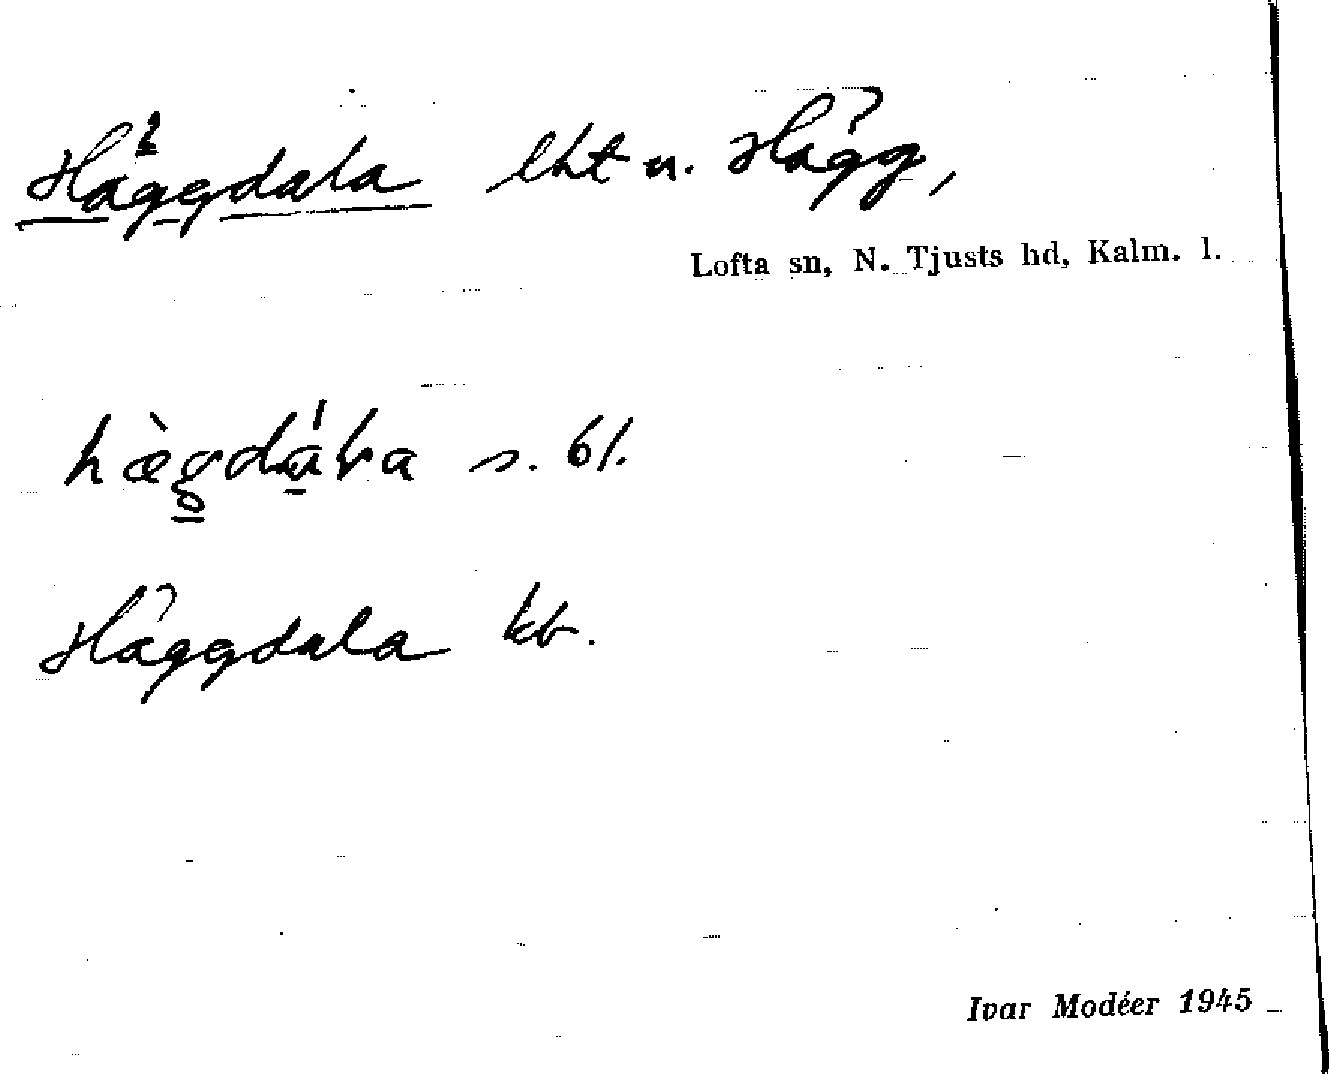 Häggdala lht u. Hägg,
Lofta sn, N. Tjusts hd, Kalm. l.
hæ̀gdála s. bl.
Häggdala kb.
Ivar Modéer 1945